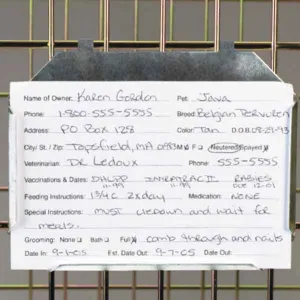 Name of Owner: Karen Gordon Pet: Java
Phone: 1-800-555-5555 Breed Belgian Tervuren
Address: PO Box 128 Color: Tan D.O.B.
City/ St / Zip: Topsfield, MA M F Neutered Spayed
Veterinarian Dr Ledoux Phone: 555-5555
Vaccinations & Dates: DHLPP RABIES
11-99 11-99 Due 12-01
Feeding Instructions: 1 3/4 C 2xday Medication: NONE
Special Instructions: must liedown and wait for
meals.
Grooming: None Bath Full comb through and nails
Date In: 9-1-05 Est. Date Out: 9-7-05 Date Out: